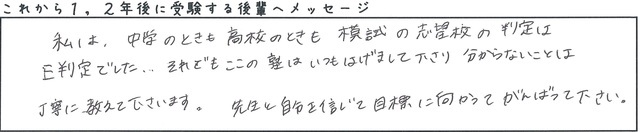 これから1,2年後に受験する後輩へメッセージ
私は、中学のときも高校のときも 模試の志望校の判定は
E判定でした… それでもここの塾はいつもはげまして下さり 分からないことは
丁寧に教えて下さいます。 先生と自分を信じて目標に向かってがんばって下さい。